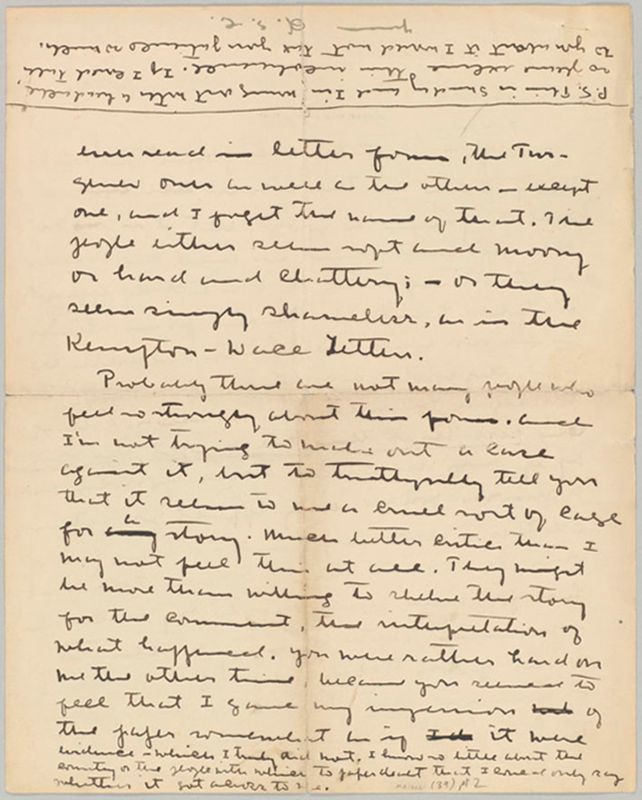 ever read in letter form, the Tur-
genev ones as well as the others - except
one, and I forget the name of that. The
people either seem soft and moony
or hard and chattery; - or they
seem simply shameless, as in the
Kempton-Wace Letters.
Probably there are not many people who
feel so strongly about this form. And
I'm not trying to make out a case
against it, but to truthfully tell you
that it seems to me a cruel sort of cage
for a any story. Much better critics than I
may not feel this at all. They might
be more than willing to the story
for the comment, the interpretation of
what happened. You were rather hard on
me the other time, because you seemed to
feel that I gave my impression of
the paper somewhat as if it were
evidence - which I truly did not. I know so little about the
country or the people with which the paper dealt that I could only say
whether it got across to me.
P.S. This is Sunday and I'm with a headache,
so please excuse this . If I could talk
to you about it I would not tax your patience so much.
yours
(39) p2